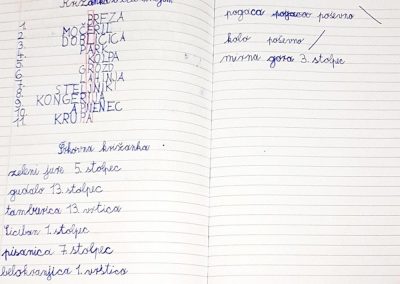 Križanka
1. BREZA
2. MOČERIL
3. DOBLIČICA
4. PARK
5. KOLPA
6. GROZD
7. LAHINJA
8. STELJNIKI
9. KONGERIJA
10. APNENEC
11. KRUPA
Črkovna križanka
zeleni jure 5. stolpec
gudalo 13. stolpec
tamburica 13. vrstica
Ciciban 1. stolpec
pisanica 7. stolpec
belokranjica 1. vrstica
pogača pogača poševno \
kolo poševno /
mirna gora 3. stolpec